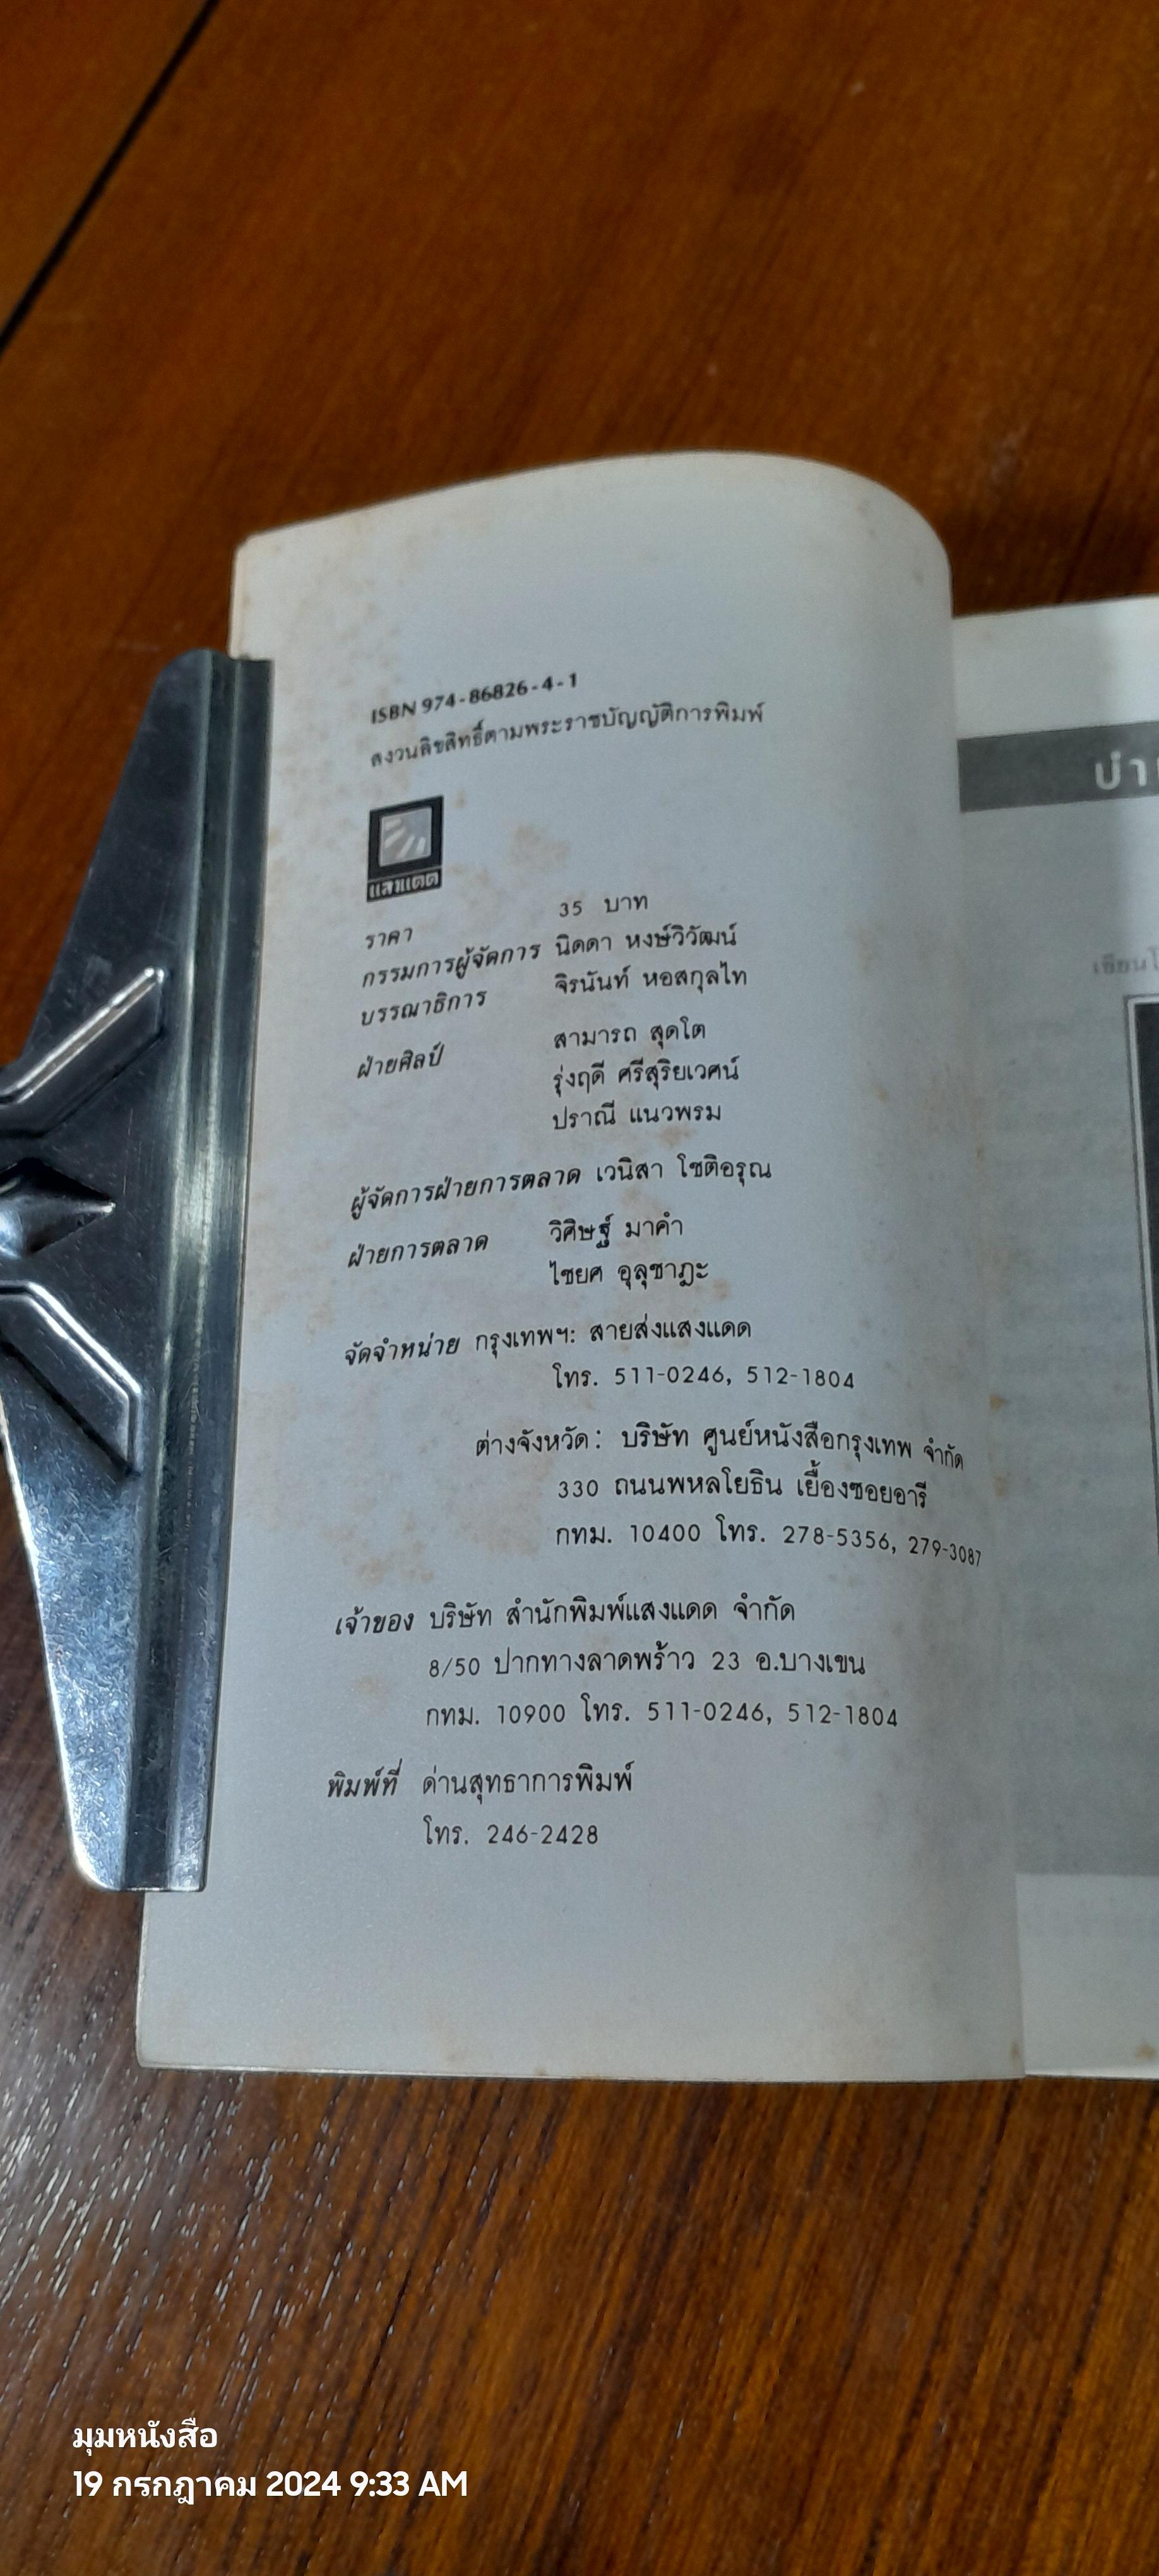 ISBN 974-86826-4-1
สงวนลิขสิทธิ์ตามพระราชบัญญัติการพิมพ์
แสงแดด
ราคา 35 บาท
กรรมการผู้จัดการ นิดดา หงษ์วิวัฒน์
บรรณาธิการ จิรนันท์ หอสกุลไท
ฝ่ายศิลป์ สามารถ สุดโต
รุ่งฤดี ศรีสุริยเวศน์
ปราณี แนวพรม
ผู้จัดการฝ่ายการตลาด เวนิสา โชติอรุณ
ฝ่ายการตลาด วิศิษฐ์ มาคำ
ไชยศ อุลุชาฎะ
จัดจำหน่าย กรุงเทพฯ: สายส่งแสงแดด
โทร. 511-0246, 512-1804
ต่างจังหวัด: บริษัท ศูนย์หนังสือกรุงเทพ จำกัด
330 ถนนพหลโยธิน เยื้องซอยอารี
กทม. 10400 โทร. 278-5356, 279-3087
เจ้าของ บริษัท สำนักพิมพ์แสงแดด จำกัด
8/50 ปากทางลาดพร้าว 23 อ.บางเขน
กทม. 10900 โทร. 511-0246, 512-1804
พิมพ์ที่ ด่านสุทธาการพิมพ์
โทร. 246-2428
มุมหนังสือ
19 กรกฎาคม 2024 9:33 AM